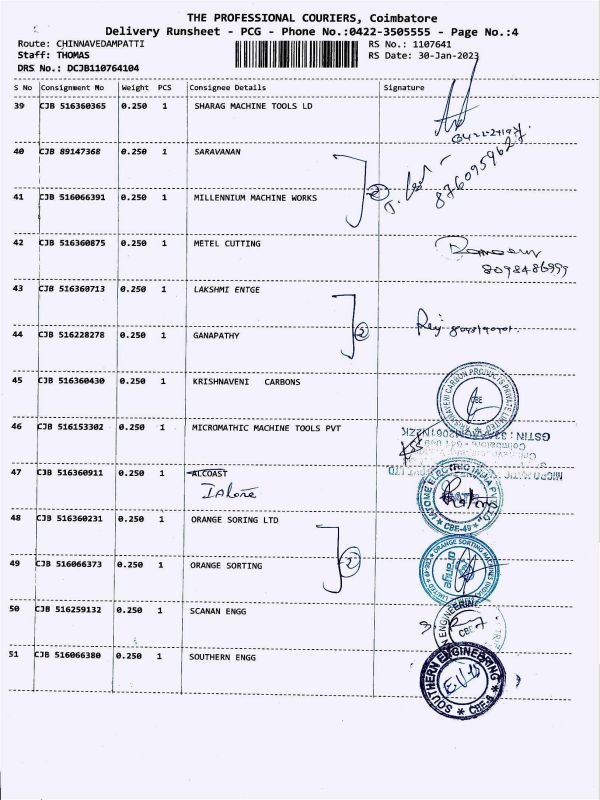 THE PROFESSIONAL COURIERS, Coimbatore
Delivery Runsheet - PCG - Phone No.:0422-3505555 - Page No.:4
Route: CHINNAVEDAMPATTI RS No.: 1107641
Staff: THOMAS RS Date: 30-Jan-2023
DRS No.: DCJB110764104
S No Consignment No Weight PCS Consignee Details Signature
39 CJB 516360365 0.250 1 SHARAG MACHINE TOOLS LD
40 CJB 89147368 0.250 1 SARAVANAN
2
8760959627
41 CJB 516066391 0.250 1 MILLENNIUM MACHINE WORKS
42 CJB 516360875 0.250 1 METEL CUTTING
8098486999
43 CJB 516360713 0.250 1 LAKSHMI ENTGE
2
44 CJB 516228278 0.250 1 GANAPATHY
45 CJB 516360430 0.250 1 KRISHNAVENI CARBONS
KRISHNAVENI CARBON PRODUCTS PRIVATE LIMITED
CBE
46 CJB 516153302 0.250 1 MICROMATHIC MACHINE TOOLS PVT
47 CJB 516360911 0.250 1 ALCOAST
ELECTRIC INDIA PVT LTD
CBE-49
48 CJB 516360231 0.250 1 ORANGE SORING LTD
2
49 CJB 516066373 0.250 1 ORANGE SORTING
ORANGE SORTING MACHINES
orange
50 CJB 516259132 0.250 1 SCANAN ENGG
ENGINEERING
CBE
51 CJB 516066380 0.250 1 SOUTHERN ENGG
SOUTHERN ENGINEERING
CBE-6